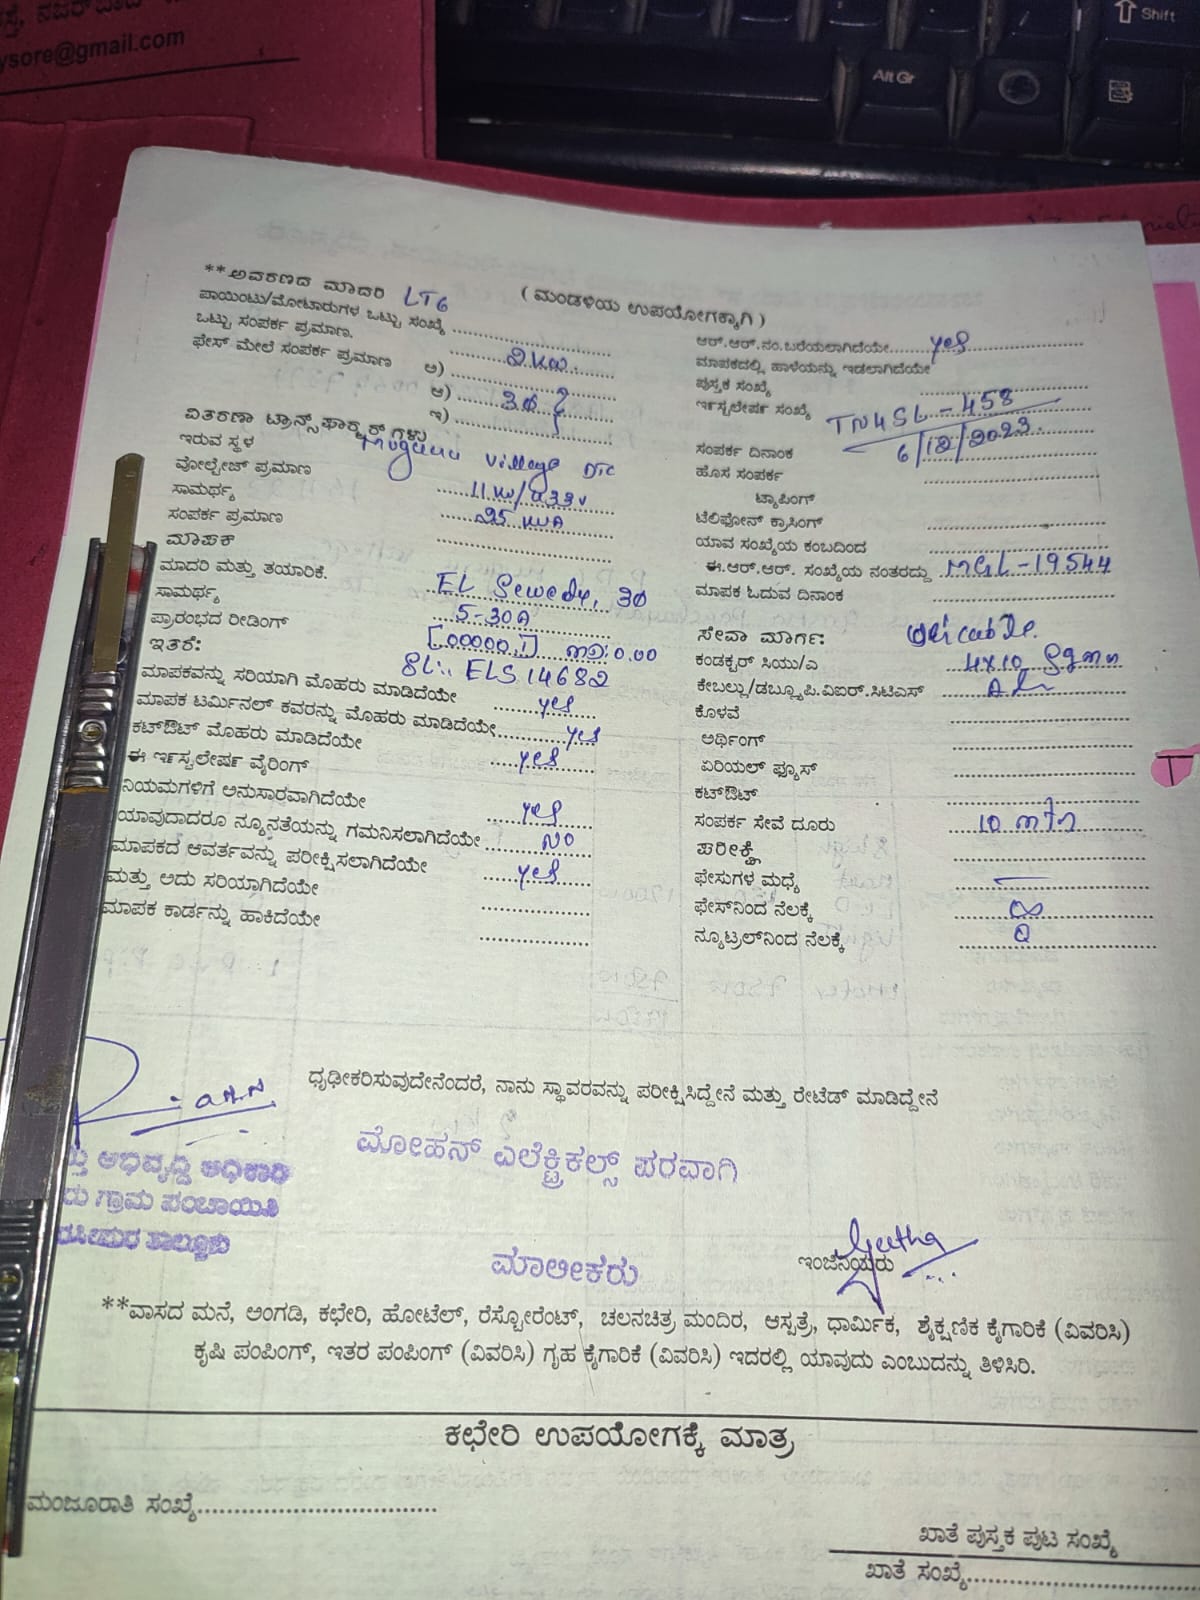 ysore@gmail.com
Shift
Alt Gr
**ಅವರಣದ ಮಾದರಿ LT6
( ಮಂಡಳಿಯ ಉಪಯೋಗಕ್ಕಾಗಿ )
ಪಾಯಿಂಟು/ಮೋಟಾರುಗಳ ಒಟ್ಟು ಸಂಖ್ಯೆ
ಒಟ್ಟು ಸಂಪರ್ಕ ಪ್ರಮಾಣ.
ಫೇಸ್ ಮೇಲೆ ಸಂಪರ್ಕ ಪ್ರಮಾಣ ಅ)
ಆ) 3Ø
ಇ)
ವಿತರಣಾ ಟ್ರಾನ್ಸ್‌ಫಾರ್‍ಮರ್ ಗಳು
ಇರುವ ಸ್ಥಳ village DTC
ವೋಲ್ಟೇಜ್ ಪ್ರಮಾಣ
ಸಾಮರ್ಥ್ಯ
ಸಂಪರ್ಕ ಪ್ರಮಾಣ
ಮಾಪಕ
ಮಾದರಿ ಮತ್ತು ತಯಾರಿಕೆ. EL Sewedy, 3Ø
ಸಾಮರ್ಥ್ಯ 5-30A
ಪ್ರಾರಂಭದ ರೀಡಿಂಗ್ [00000.1] MD:0.00
ಇತರೆ: Sl:. ELS 14682
ಮಾಪಕವನ್ನು ಸರಿಯಾಗಿ ಮೊಹರು ಮಾಡಿದೆಯೇ yes
ಮಾಪಕ ಟರ್ಮಿನಲ್ ಕವರನ್ನು ಮೊಹರು ಮಾಡಿದೆಯೇ yes
ಕಟ್‌ಔಟ್ ಮೊಹರು ಮಾಡಿದೆಯೇ yes
ಈ ಇನ್‌ಸ್ಟಲೇಷನ್ ವೈರಿಂಗ್
ನಿಯಮಗಳಿಗೆ ಅನುಸಾರವಾಗಿದೆಯೇ yes
ಯಾವುದಾದರೂ ನ್ಯೂನತೆಯನ್ನು ಗಮನಿಸಲಾಗಿದೆಯೇ NO
ಮಾಪಕದ ಆವರ್ತವನ್ನು ಪರೀಕ್ಷಿಸಲಾಗಿದೆಯೇ yes
ಮತ್ತು ಅದು ಸರಿಯಾಗಿದೆಯೇ
ಮಾಪಕ ಕಾರ್ಡನ್ನು ಹಾಕಿದೆಯೇ
ಆರ್.ಆರ್.ನಂ.ಬರೆಯಲಾಗಿದೆಯೇ yes
ಮಾಪಕದಲ್ಲಿ ಹಾಳೆಯನ್ನು ಇಡಲಾಗಿದೆಯೇ
ಪುಸ್ತಕ ಸಂಖ್ಯೆ
ಇನ್‌ಸ್ಟಲೇಷನ್ ಸಂಖ್ಯೆ TN4SL-458
ಸಂಪರ್ಕ ದಿನಾಂಕ 6/12/2023.
ಹೊಸ ಸಂಪರ್ಕ
ಟ್ಯಾಪಿಂಗ್
ಟೆಲಿಫೋನ್ ಕ್ರಾಸಿಂಗ್
ಯಾವ ಸಂಖ್ಯೆಯ ಕಂಬದಿಂದ
ಈ.ಆರ್.ಆರ್. ಸಂಖ್ಯೆಯ ನಂತರದ್ದು MGL-19544
ಮಾಪಕ ಓದುವ ದಿನಾಂಕ
ಸೇವಾ ಮಾರ್ಗ:
ಕಂಡಕ್ಟರ್ ಸಿಯು/ಎ 4x10 Sqmm
ಕೇಬಲ್ಲು/ಡಬ್ಲ್ಯೂಪಿ.ವಿಐಆರ್.ಸಿಟಿಎಸ್
ಕೊಳವೆ
ಅರ್ಥಿಂಗ್
ಏರಿಯಲ್ ಫ್ಯೂಸ್
ಕಟ್‌ಔಟ್
ಸಂಪರ್ಕ ಸೇವೆ ದೂರು 10 mtr
ಪರೀಕ್ಷೆ
ಫೇಸುಗಳ ಮಧ್ಯೆ
ಫೇಸ್‌ನಿಂದ ನೆಲಕ್ಕೆ
ನ್ಯೂಟ್ರಲ್‌ನಿಂದ ನೆಲಕ್ಕೆ
ಧೃಢೀಕರಿಸುವುದೇನೆಂದರೆ, ನಾನು ಸ್ಥಾವರವನ್ನು ಪರೀಕ್ಷಿಸಿದ್ದೇನೆ ಮತ್ತು ರೇಟೆಡ್ ಮಾಡಿದ್ದೇನೆ
ಮೋಹನ್ ಎಲೆಕ್ಟ್ರಿಕಲ್ಸ್ ಪರವಾಗಿ
ಅಭಿವೃದ್ಧಿ ಅಧಿಕಾರಿ
ಗ್ರಾಮ ಪಂಚಾಯಿತಿ
ತಾಲ್ಲೂಕು
ಮಾಲೀಕರು
Geetha
ಇಂಜಿನಿಯರು
**ವಾಸದ ಮನೆ, ಅಂಗಡಿ, ಕಛೇರಿ, ಹೋಟೆಲ್, ರೆಸ್ಟೋರೆಂಟ್, ಚಲನಚಿತ್ರ ಮಂದಿರ, ಆಸ್ಪತ್ರೆ, ಧಾರ್ಮಿಕ, ಶೈಕ್ಷಣಿಕ ಕೈಗಾರಿಕೆ (ವಿವರಿಸಿ)
ಕೃಷಿ ಪಂಪಿಂಗ್, ಇತರ ಪಂಪಿಂಗ್ (ವಿವರಿಸಿ) ಗೃಹ ಕೈಗಾರಿಕೆ (ವಿವರಿಸಿ) ಇದರಲ್ಲಿ ಯಾವುದು ಎಂಬುದನ್ನು ತಿಳಿಸಿರಿ.
ಕಛೇರಿ ಉಪಯೋಗಕ್ಕೆ ಮಾತ್ರ
ಮಂಜೂರಾತಿ ಸಂಖ್ಯೆ
ಖಾತೆ ಪುಸ್ತಕ ಪುಟ ಸಂಖ್ಯೆ
ಖಾತೆ ಸಂಖ್ಯೆ